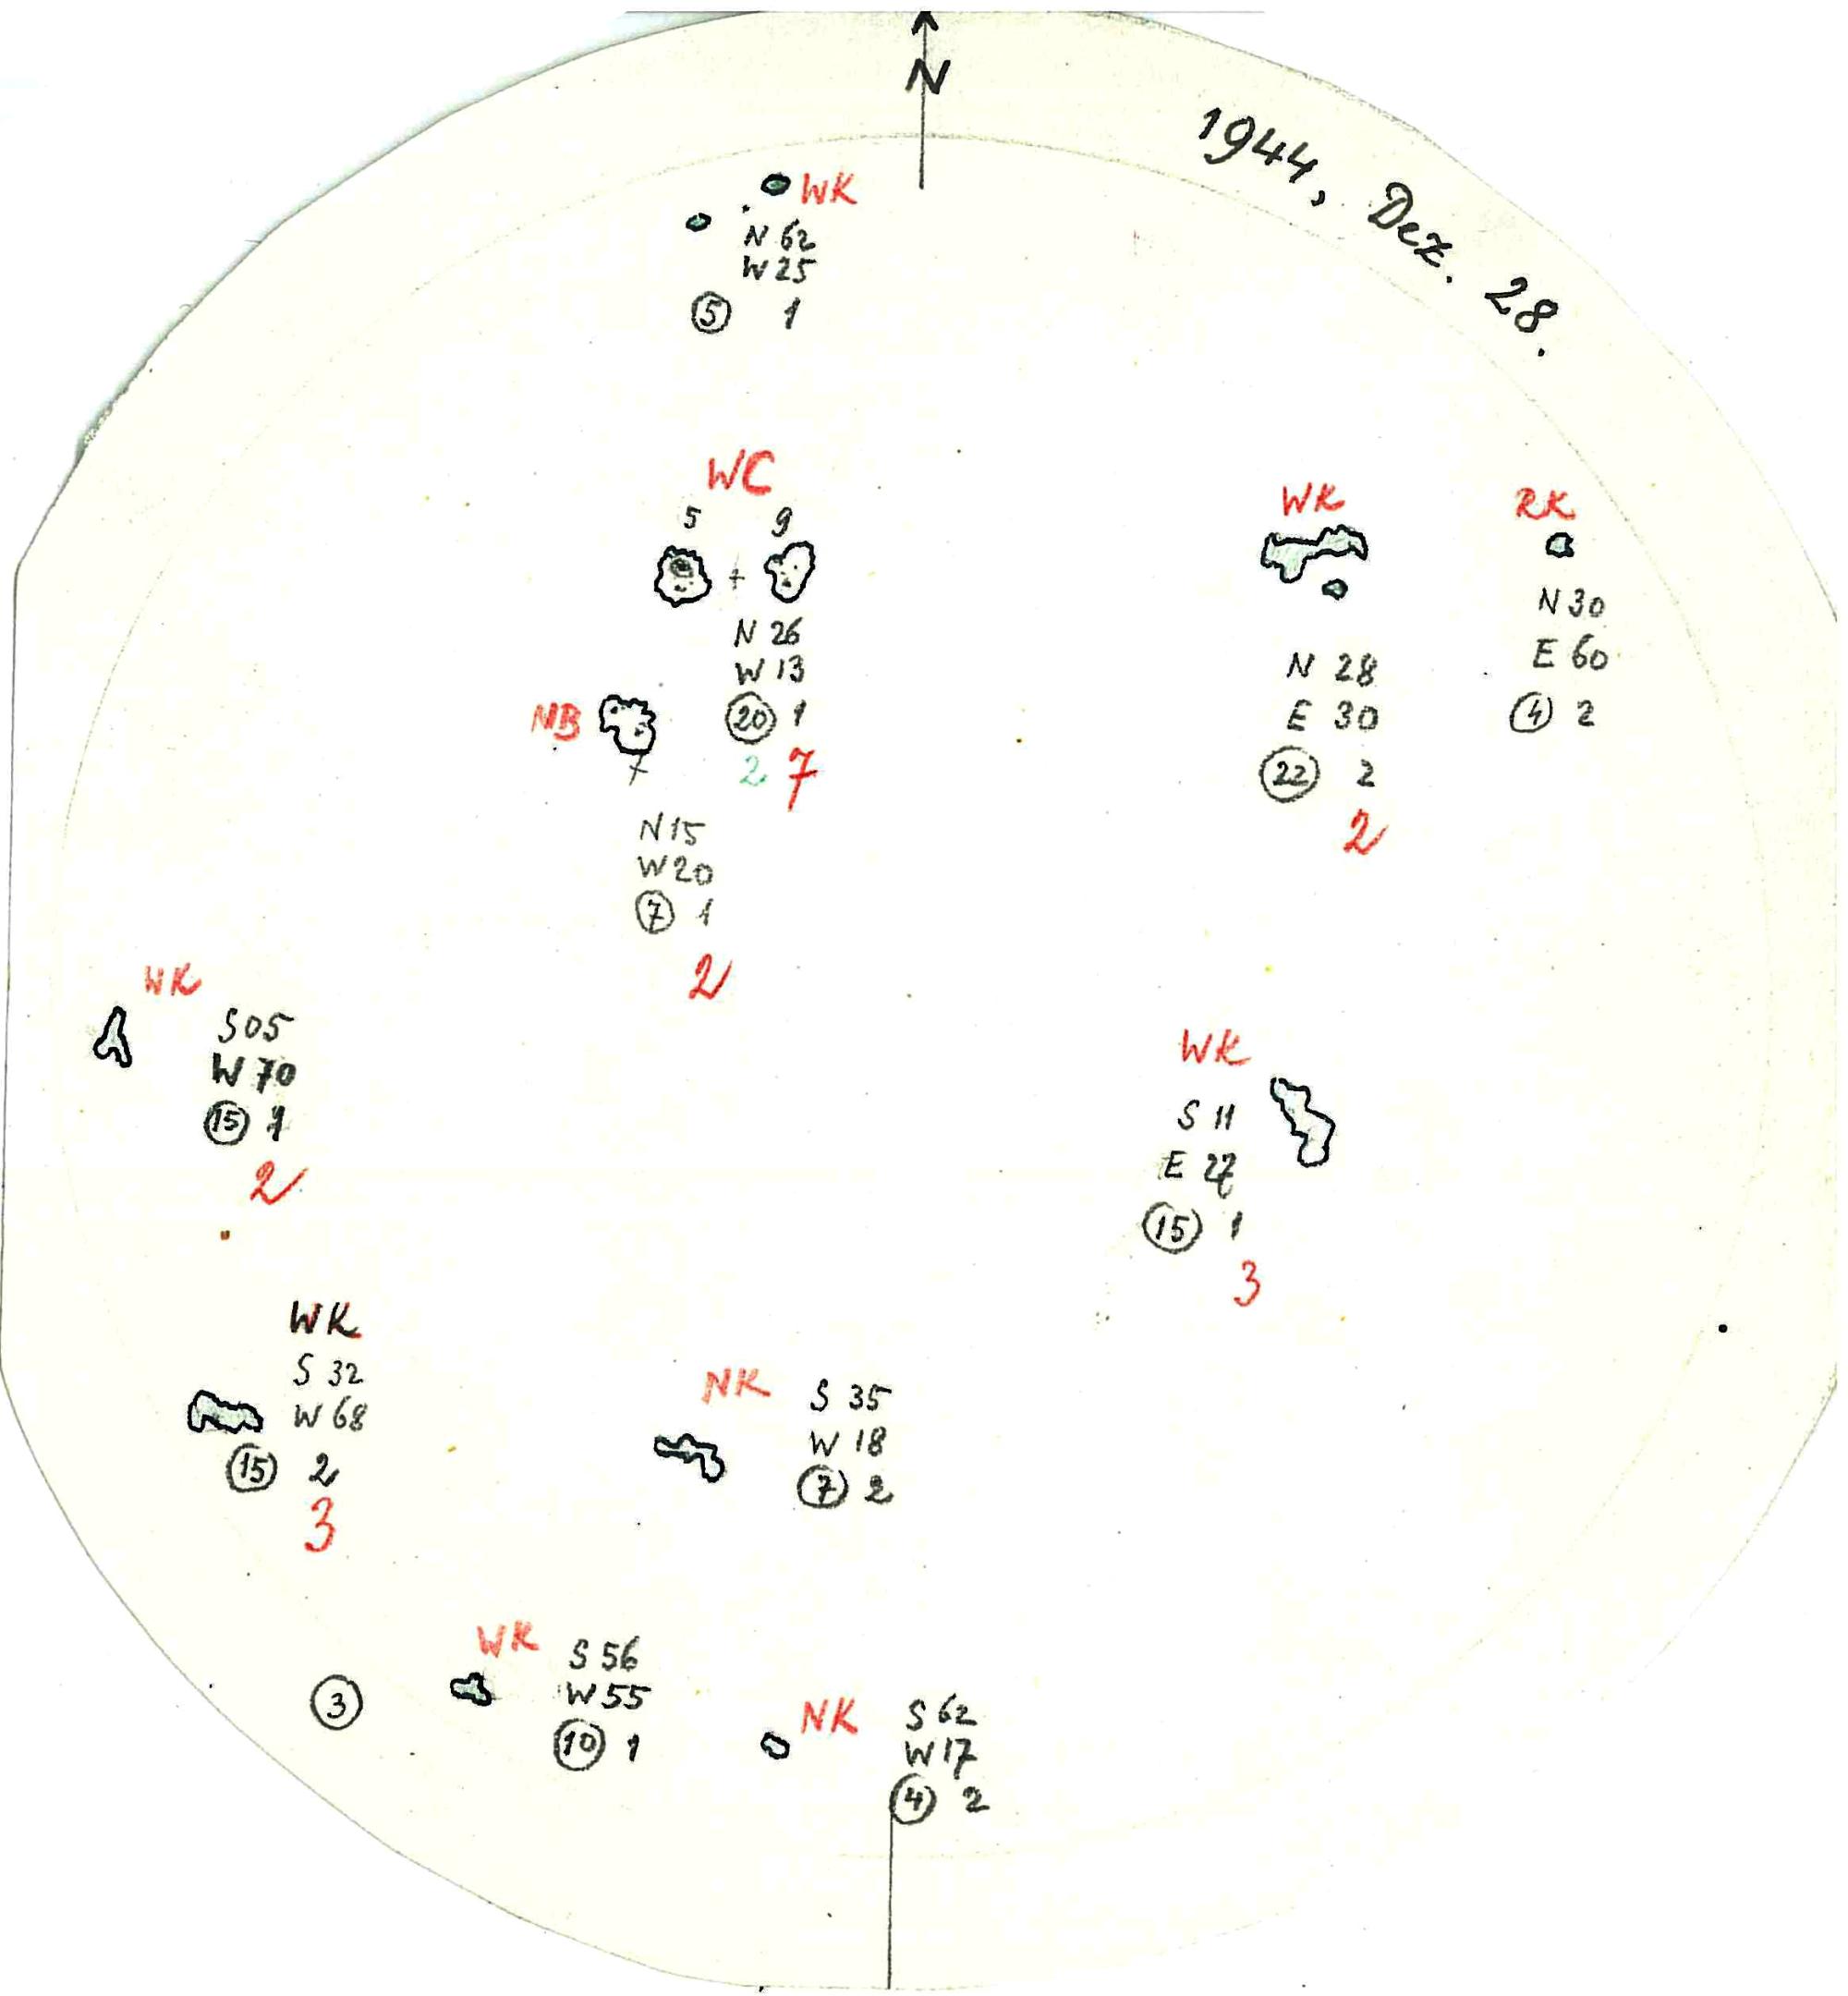 N
1944, Dez. 28.
WK
N 62
W 25
5 1
WC
5 9
+
N 26
W 13
20 1
2 7
NB
7
N 15
W 20
7 1
2
WK
N 28
E 30
22 2
2
RK
N 30
E 60
4 2
WK
S 05
W 70
15 1
2
WK
S 11
E 27
15 1
3
WK
S 32
W 68
15 2
3
NK
S 35
W 18
7 2
WK
S 56
W 55
10 1
3
NK
S 62
W 17
4 2